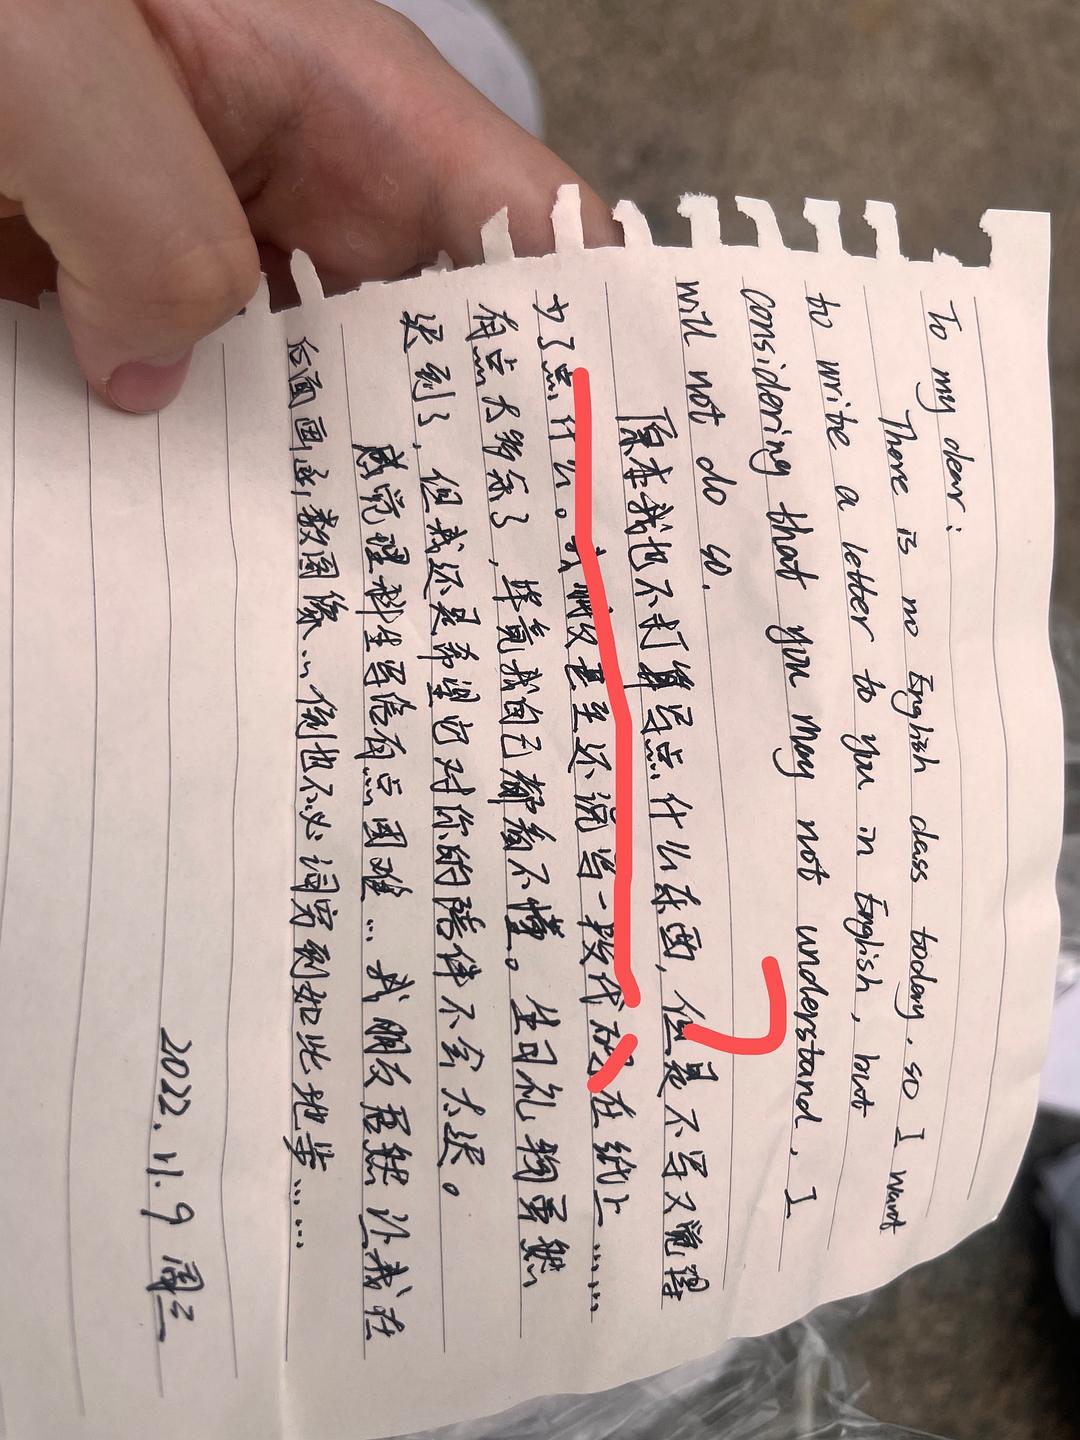 To my dear:
There is no English class today, so I want
to write a letter to you in English, but
considering that you may not understand, I
will not do so.
原本我也不打算写点什么东西，但是不写又觉得
少了点什么。我朋友甚至还说写一段代码在纸上……
有点太多余了，毕竟我自己都看不懂。生日礼物虽然
迟到了，但我还是希望它对你的陪伴不会太迟。
感觉理科生写信有点困难…我朋友居然让我在
后面画函数图像…倒也不必词穷到如此地步……
2022.11.9 周三